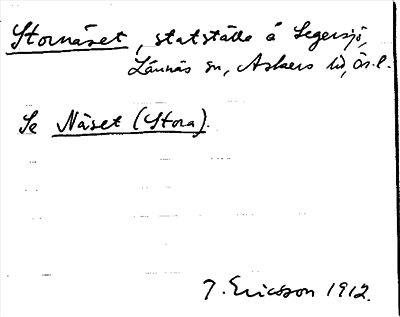 Stornäset, statställe å Segersjö,
Lännäs sn, Askers hd, Ör. l.
Se Näset (Stora).
J. Ericsson 1912.